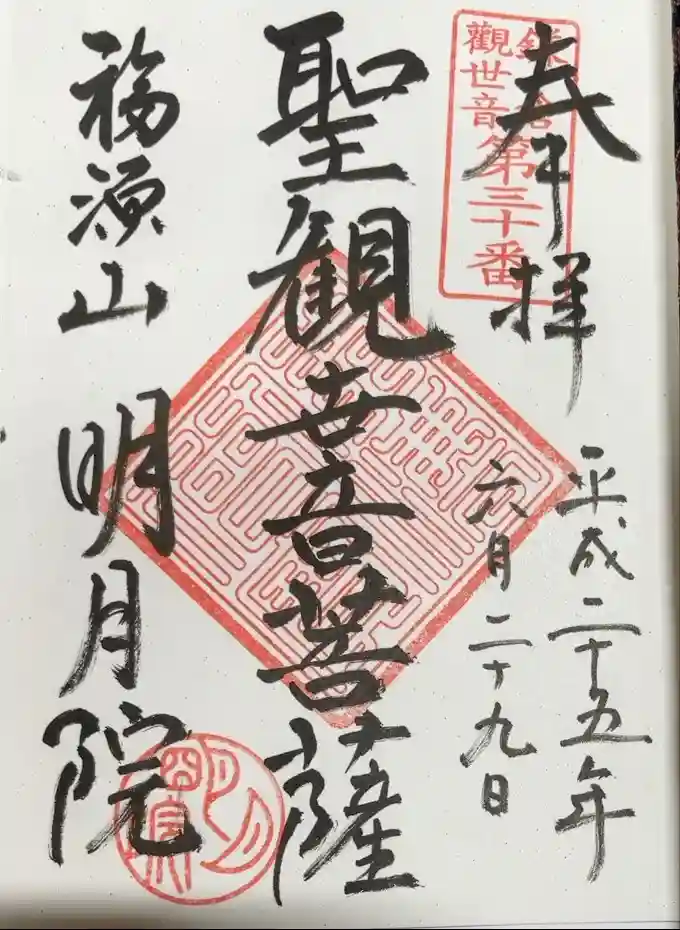 奉拝
平成二十五年
六月二十九日
鎌倉
觀世音第三十番
聖観世音菩薩
福源山 明月院
明月院